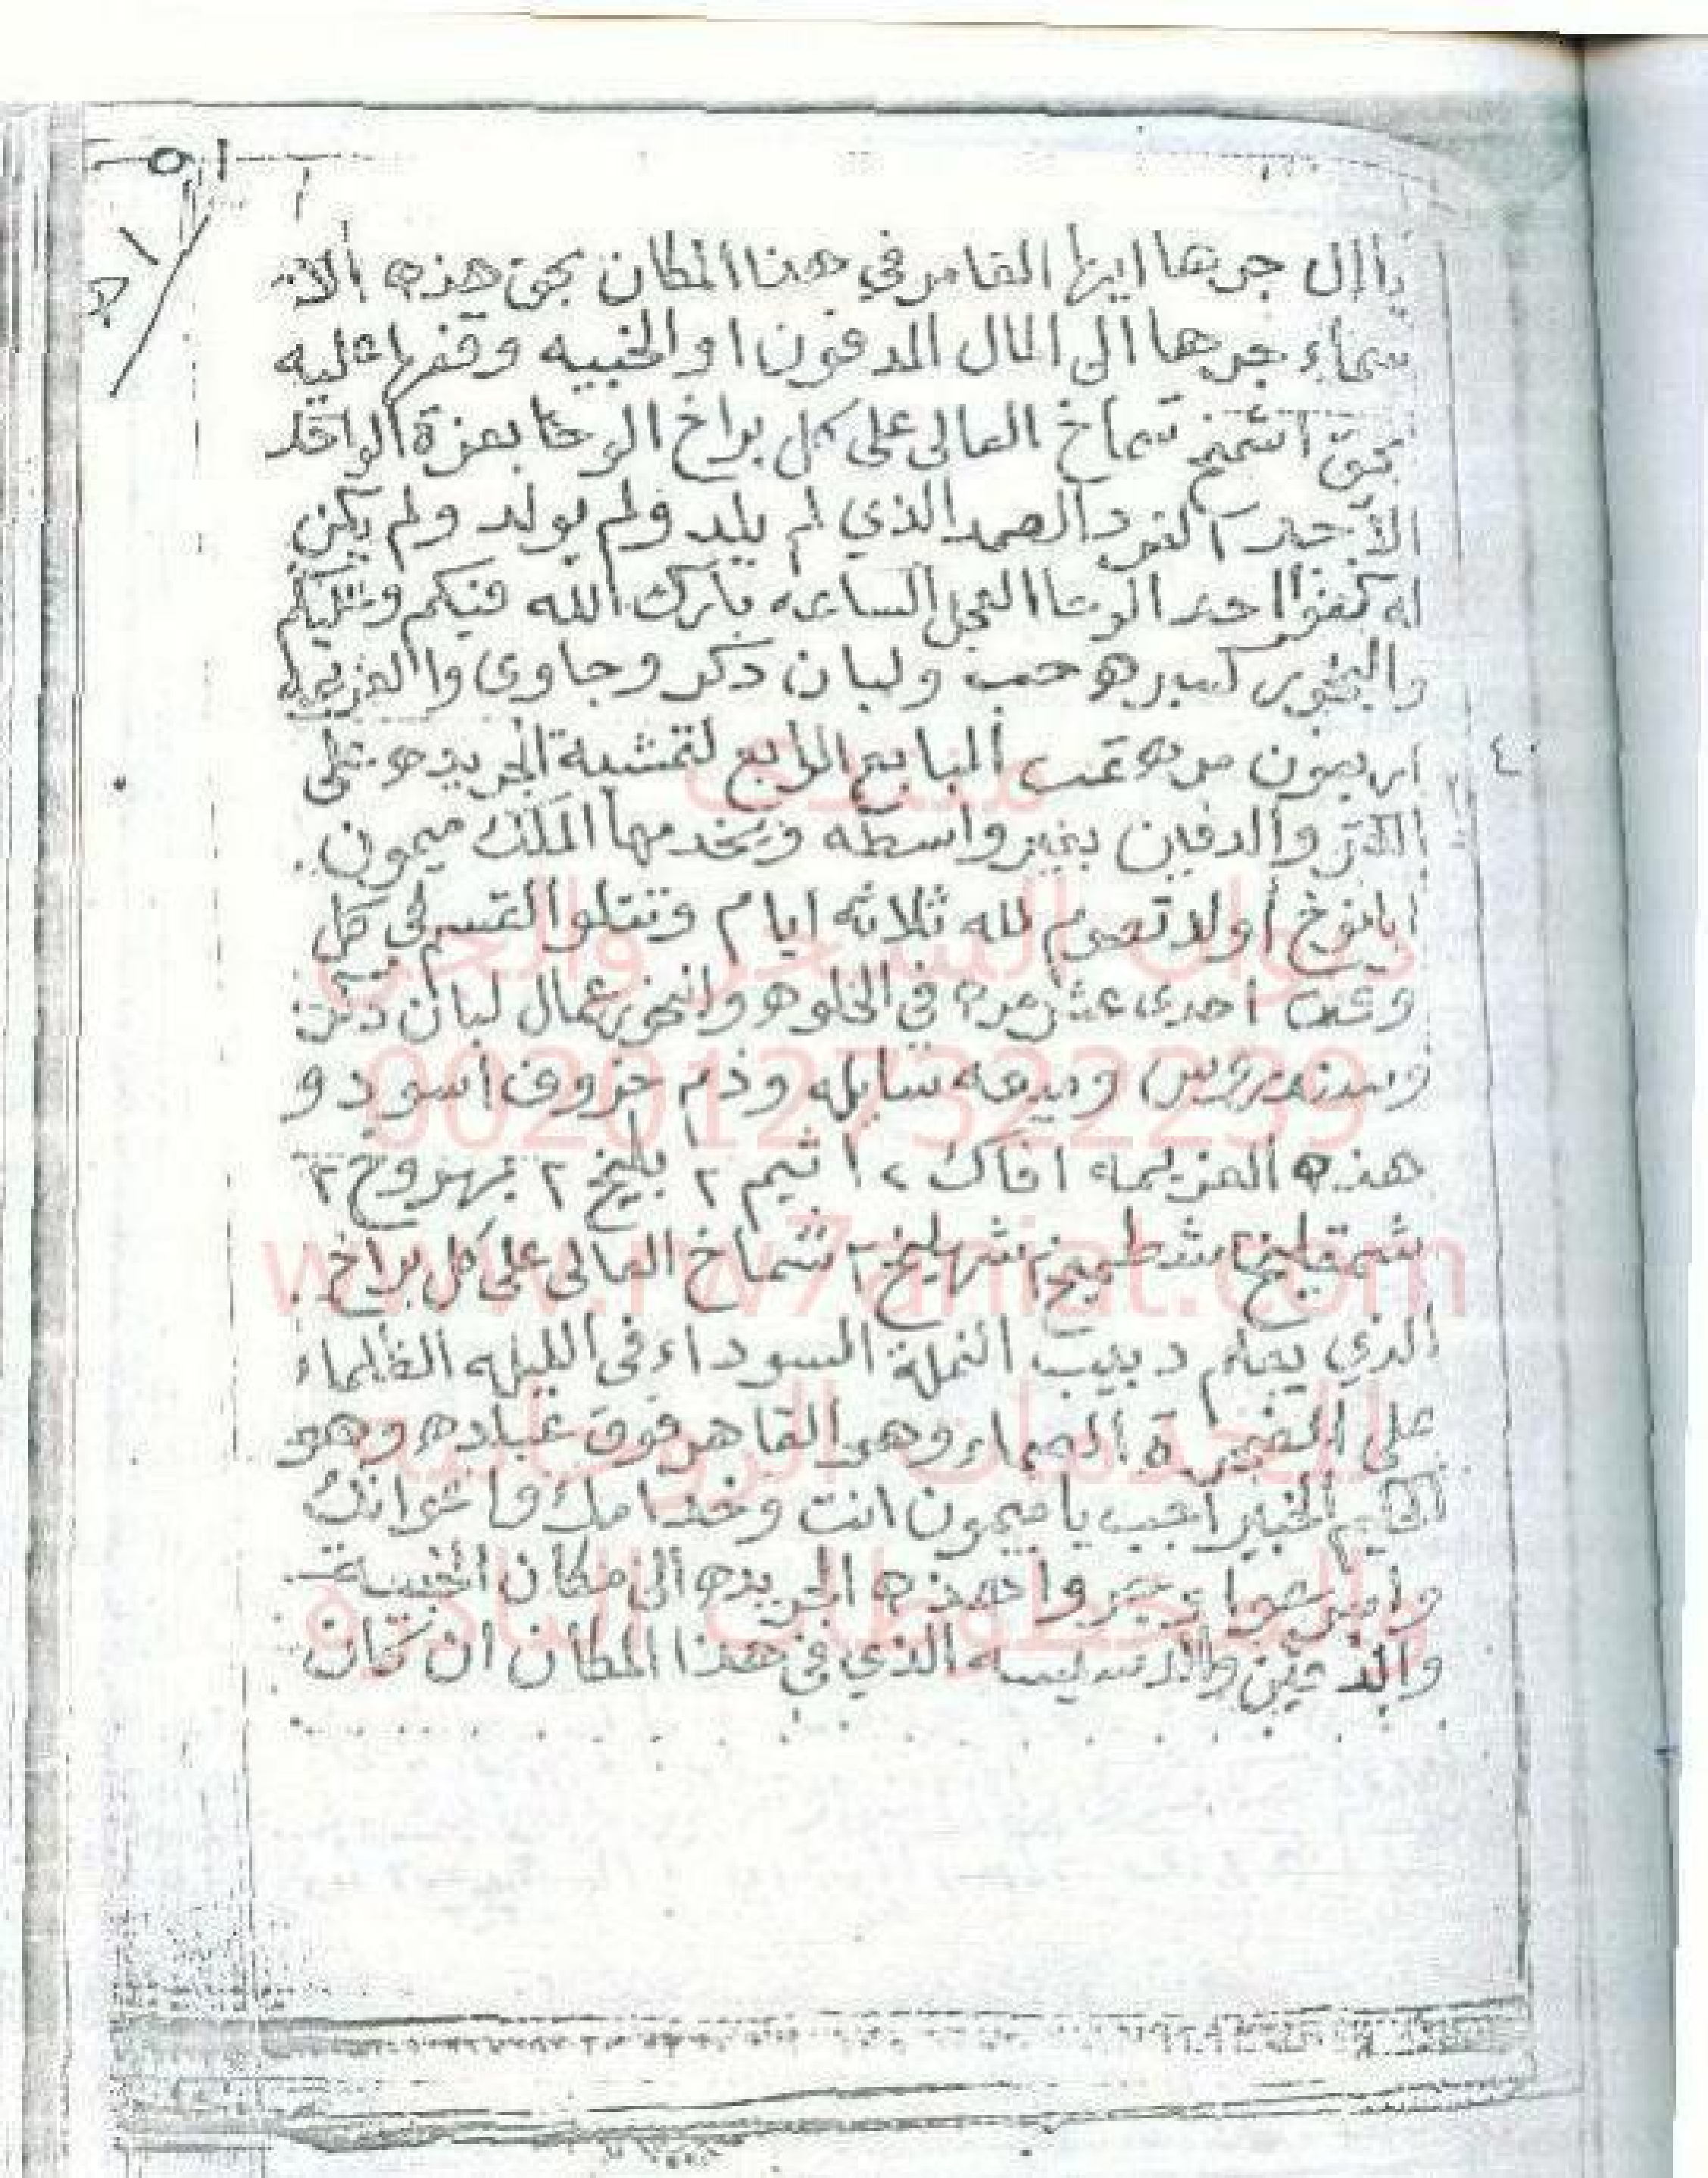 جرها ايها العامر في هذا المكان بحق هذه الا
سماء جرها الى المال المدفون او الخبيه وقفها عليه
بحق اشمخ شماخ العالى على كل براخ الوحا بعزة الواحد
الاحد الفرد الصمد الذي لم يلد ولم يولد ولم يكن
له كفوا احد الوحا العجل الساعه بارك الله فيكم وعليكم
والبخور كسبره حب ولبان ذكر وجاوى والعزيمه
اربعون مره تمت الباب الرابع لتمشية الجريده على
الكنز والدفين بغير واسطه ويخدمها الملك ميمون
ابانوخ أولا تصوم لله ثلاثه ايام وتتلوا القسم في كل
وقت احدى عشر مره في الخلوه والبخور عمال لبان ذكر
وسندروس وميعه سايله ودم خروف اسود و
هذه العزيمه افاك ٢ اشيم ٢ بليخ ٢ بهروخ ٢
شمقليخ شطميخ شهليخ ٢ شماخ العالى على كل براخ
الذي يعلم دبيب النملة السوداء في الليله الظلماء
على الصخرة الصماء وهو القاهر فوق عباده وهو
الحكيم الخبير اجب يا ميمون انت وخدامك واعوانك
واسرعوا وجروا هذه الجريده الى مكان الخبيئة
والدفين والدسيسه الذي في هذا المكان ان كان
٤
منتدى
0020127322239
www.rw7aniat.com
للخدمات الروحانية
والمخطوطات النادرة